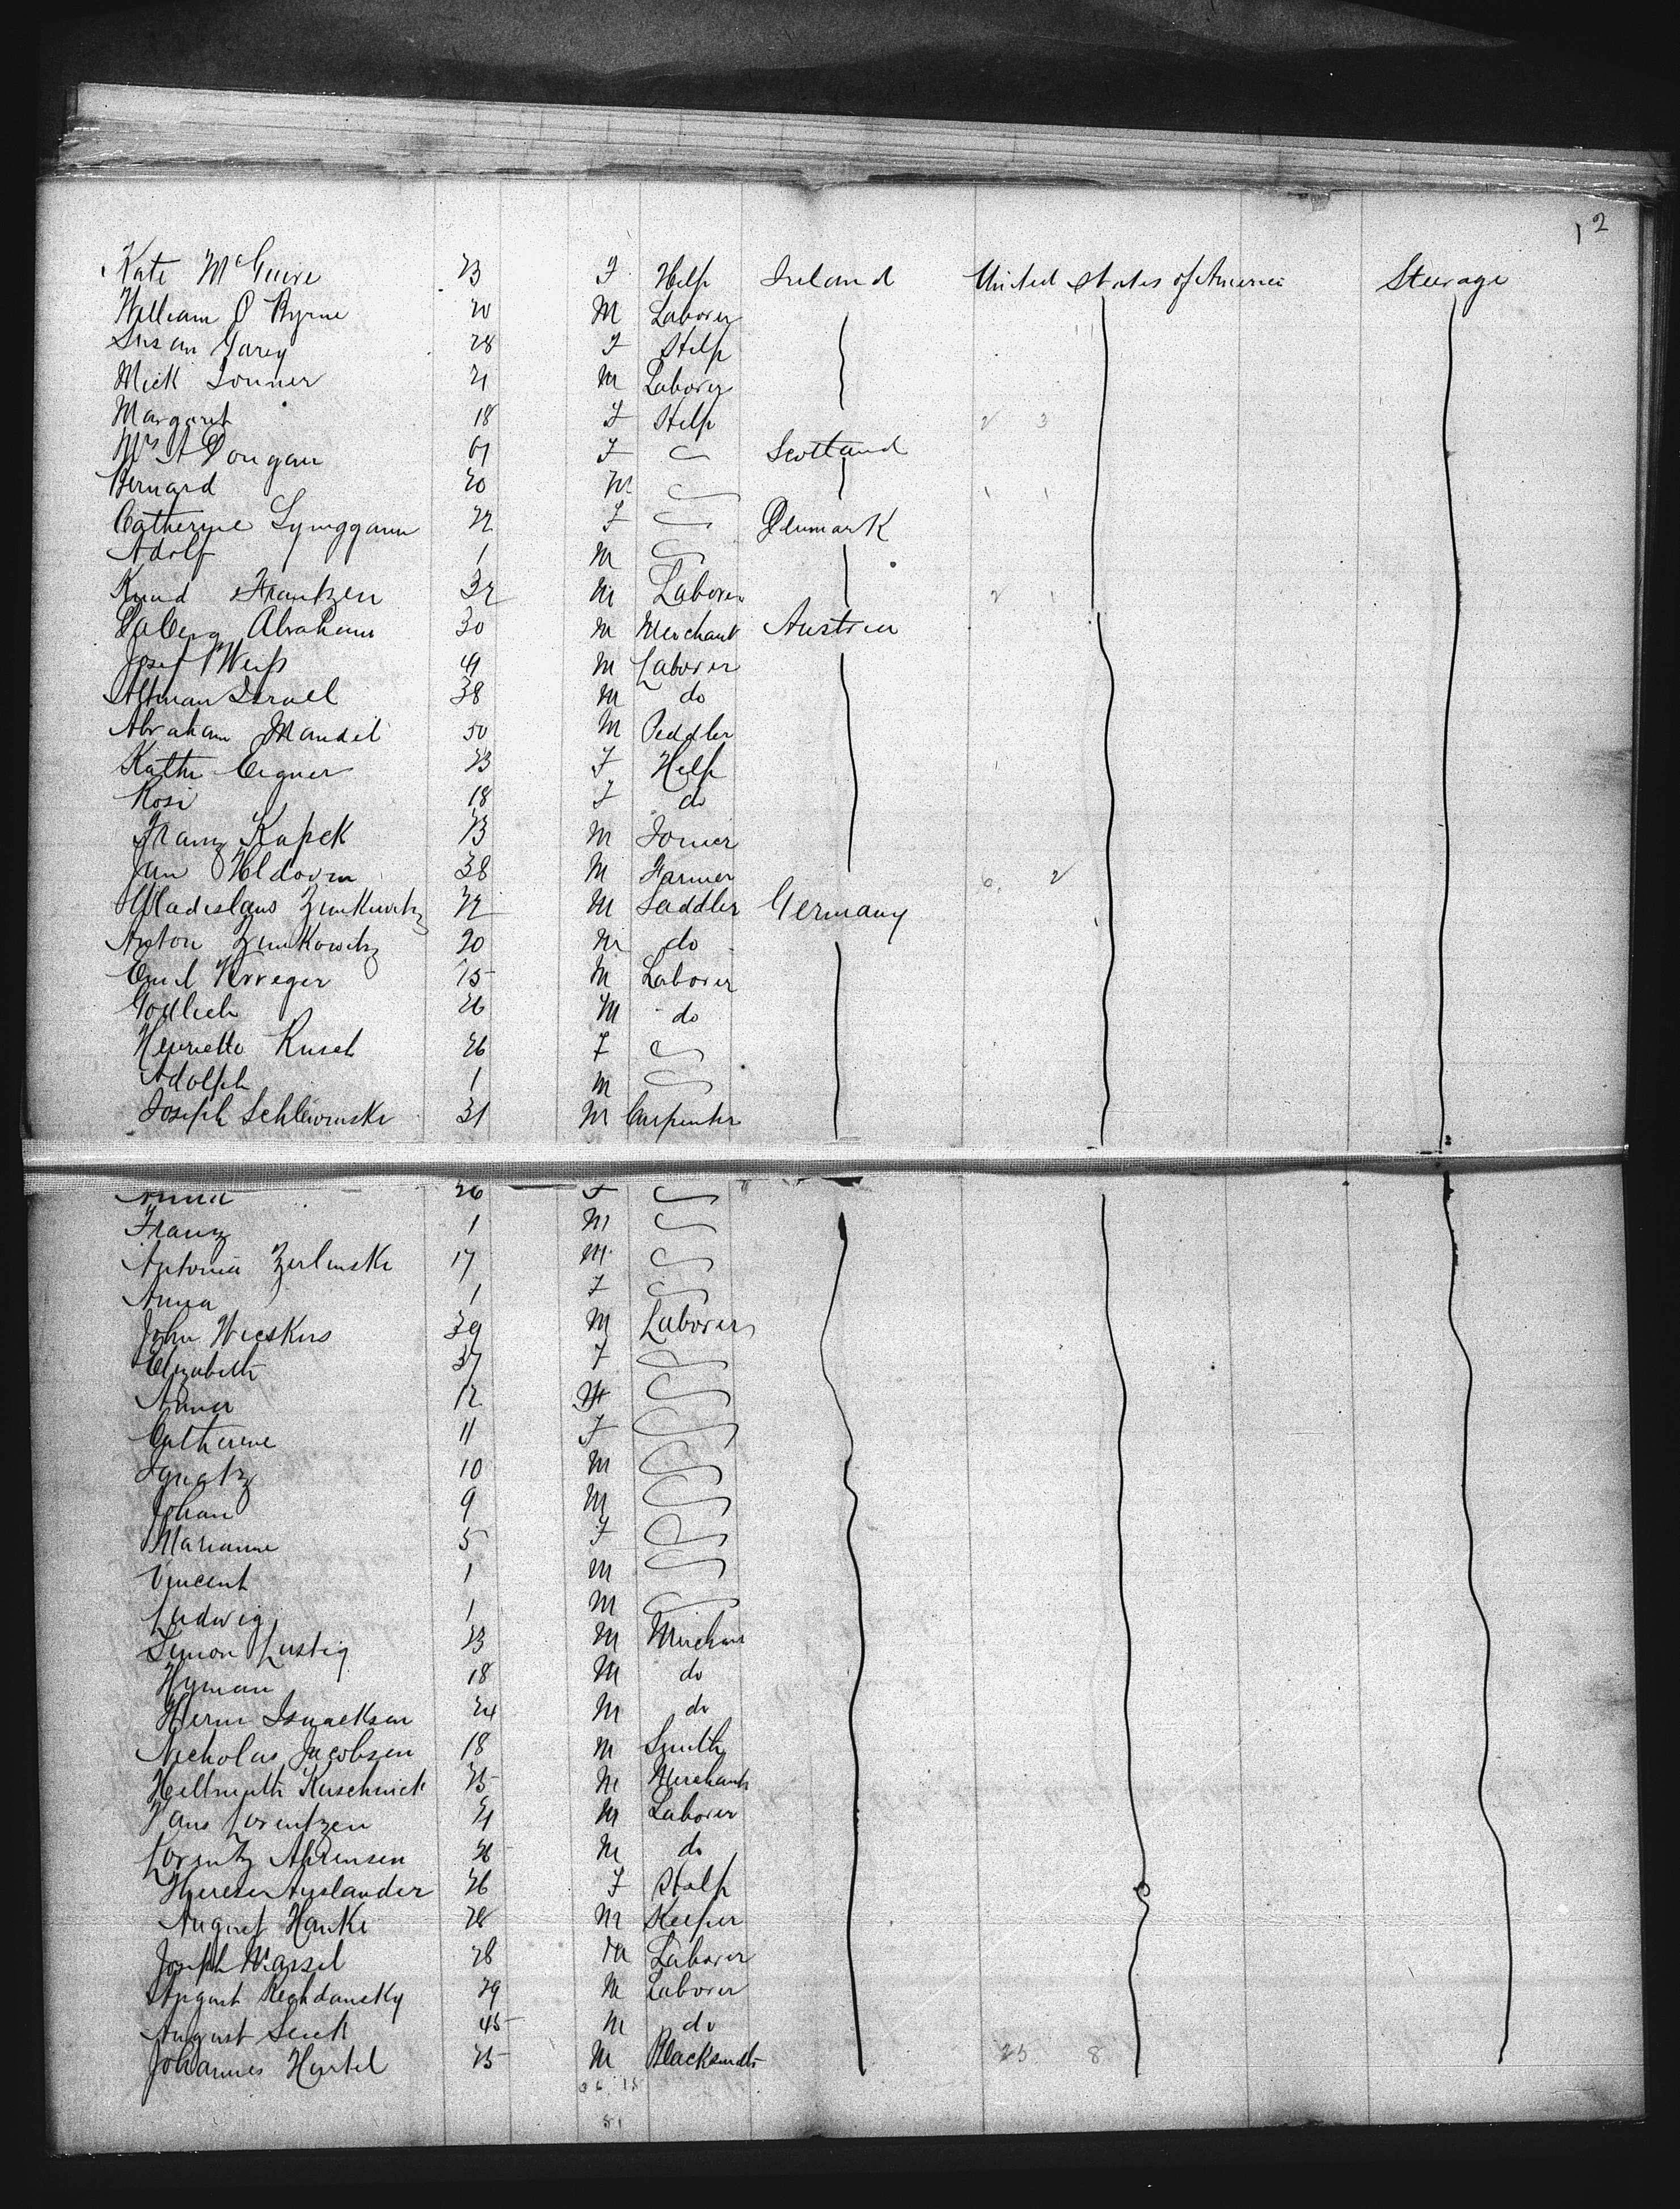 12
Kate McGuire 23 F Help Ireland United States of America Steerage
William O Byrne 20 M Laborer
Susan Garey 28 F Help
Mick Conner 21 M Laborer
Margaret 18 F Help 2 3
Mrs A Dongan 61 F Scotland
Bernard 20 M 1 1
Catherine Lynggaan 22 F Denmark
Adolf 1 M
Knud Frantzen 32 M Laborer 2 1
Abraham 30 M Merchant Austria
Josef Weiss 41 M Laborer
Altman Israel 38 M do
Abraham Mandel 50 M Peddler
Kathe Eigner 23 F Help
Rosi 18 F do
Franz Kapek 23 M Joiner
Jan 38 M Farmer 6 2
Wladislaus Zunkowitz 22 M Saddler Germany
Anton Zunkowitz 20 M do
Emil Krueger 15 M Laborer
Godlieb 26 M do
Henriette Rusch 26 F
Adolph 1 M
Joseph Schlewinski 31 M Carpenter
Anna 26 F
Franz 1 M
Antonia Zerlinski 17 M
Anna 1 F
John Wieskus 39 M Laborer
Elizabeth 37 F
Anna 12 F
Catherine 11 F
Ignatz 10 M
Johan 9 M
Marianne 5 F
Vincent 1 M
Ludwig 1 M
Simon Lustig 23 M Merchant
Hyman 18 M do
Herm Isaacksen 24 M do
Nicholas Jacobsen 18 M Smith
Hellmuth Kuschnick 25 M Merchant
Hans Lorentzen 21 M Laborer
Lorentz Ahrensen 26 M do
Therese Auslander 26 F Help
August Hanke 28 M Keeper
Joseph Wassel 28 M Laborer
August Reghdansky 29 M Laborer
August Senk 45 M do
Johannes Hertel 25 M Blacksmith 25 8
36 15
51